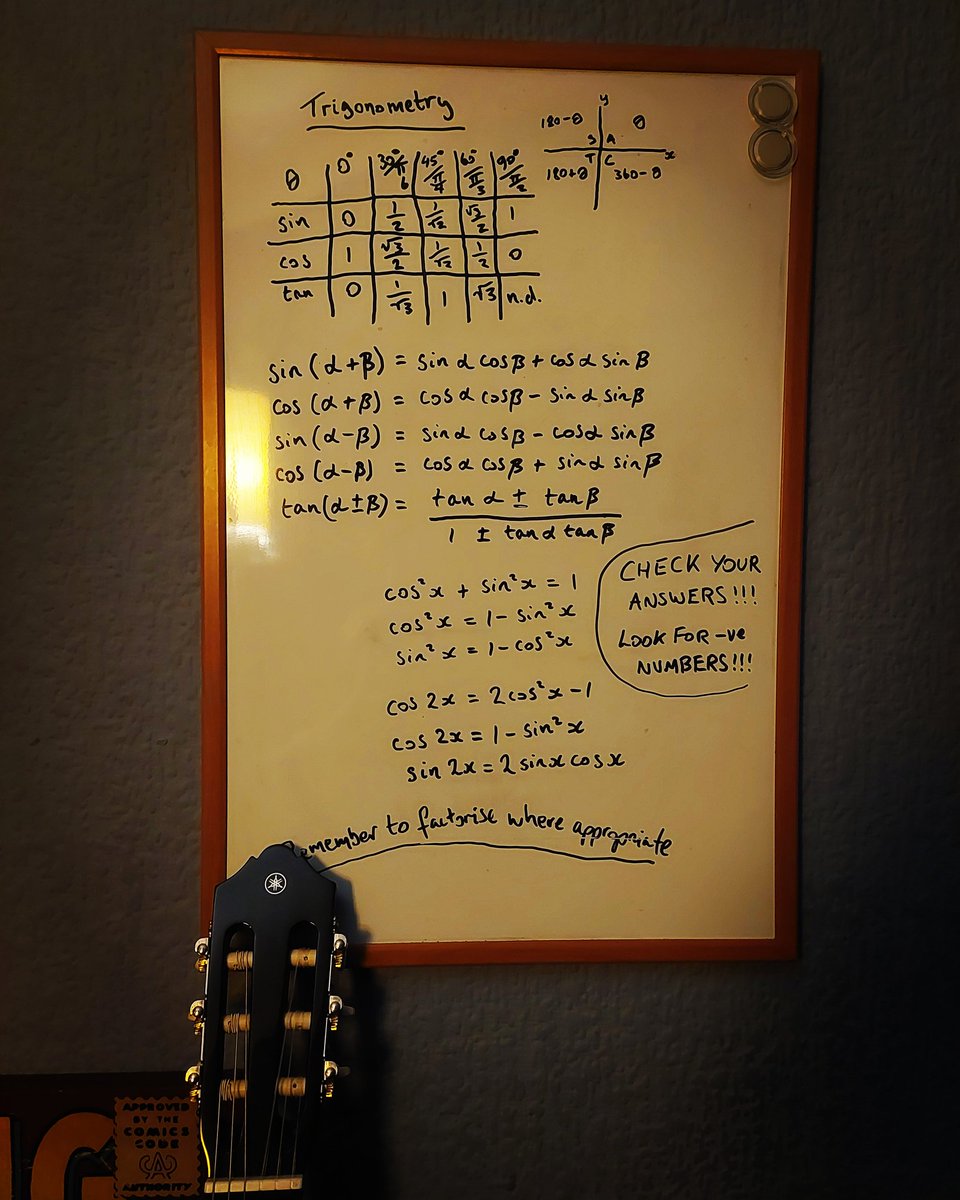 Trigonometry
y
180-θ θ
S A
T C x
180+θ 360-θ
θ 0° 30°/π/6 45°/π/4 60°/π/3 90°/π/2
sin 0 1/2 1/√2 √3/2 1
cos 1 √3/2 1/√2 1/2 0
tan 0 1/√3 1 √3 n.d.
sin(α+β) = sin α cosβ + cos α sin β
cos(α+β) = cos α cosβ - sin α sinβ
sin(α-β) = sinα cosβ - cosα sinβ
cos(α-β) = cos α cosβ + sinα sinβ
tan(α±β) = tan α ± tanβ
1 ± tanα tanβ
cos²x + sin²x = 1
cos²x = 1 - sin²x
sin²x = 1 - cos²x
CHECK YOUR
ANSWERS!!!
LOOK FOR -ve
NUMBERS!!!
cos 2x = 2cos²x - 1
cos 2x = 1 - sin²x
sin 2x = 2 sinx cosx
Remember to factorise where appropriate
APPROVED
BY THE
COMICS
CODE
CA
AUTHORITY